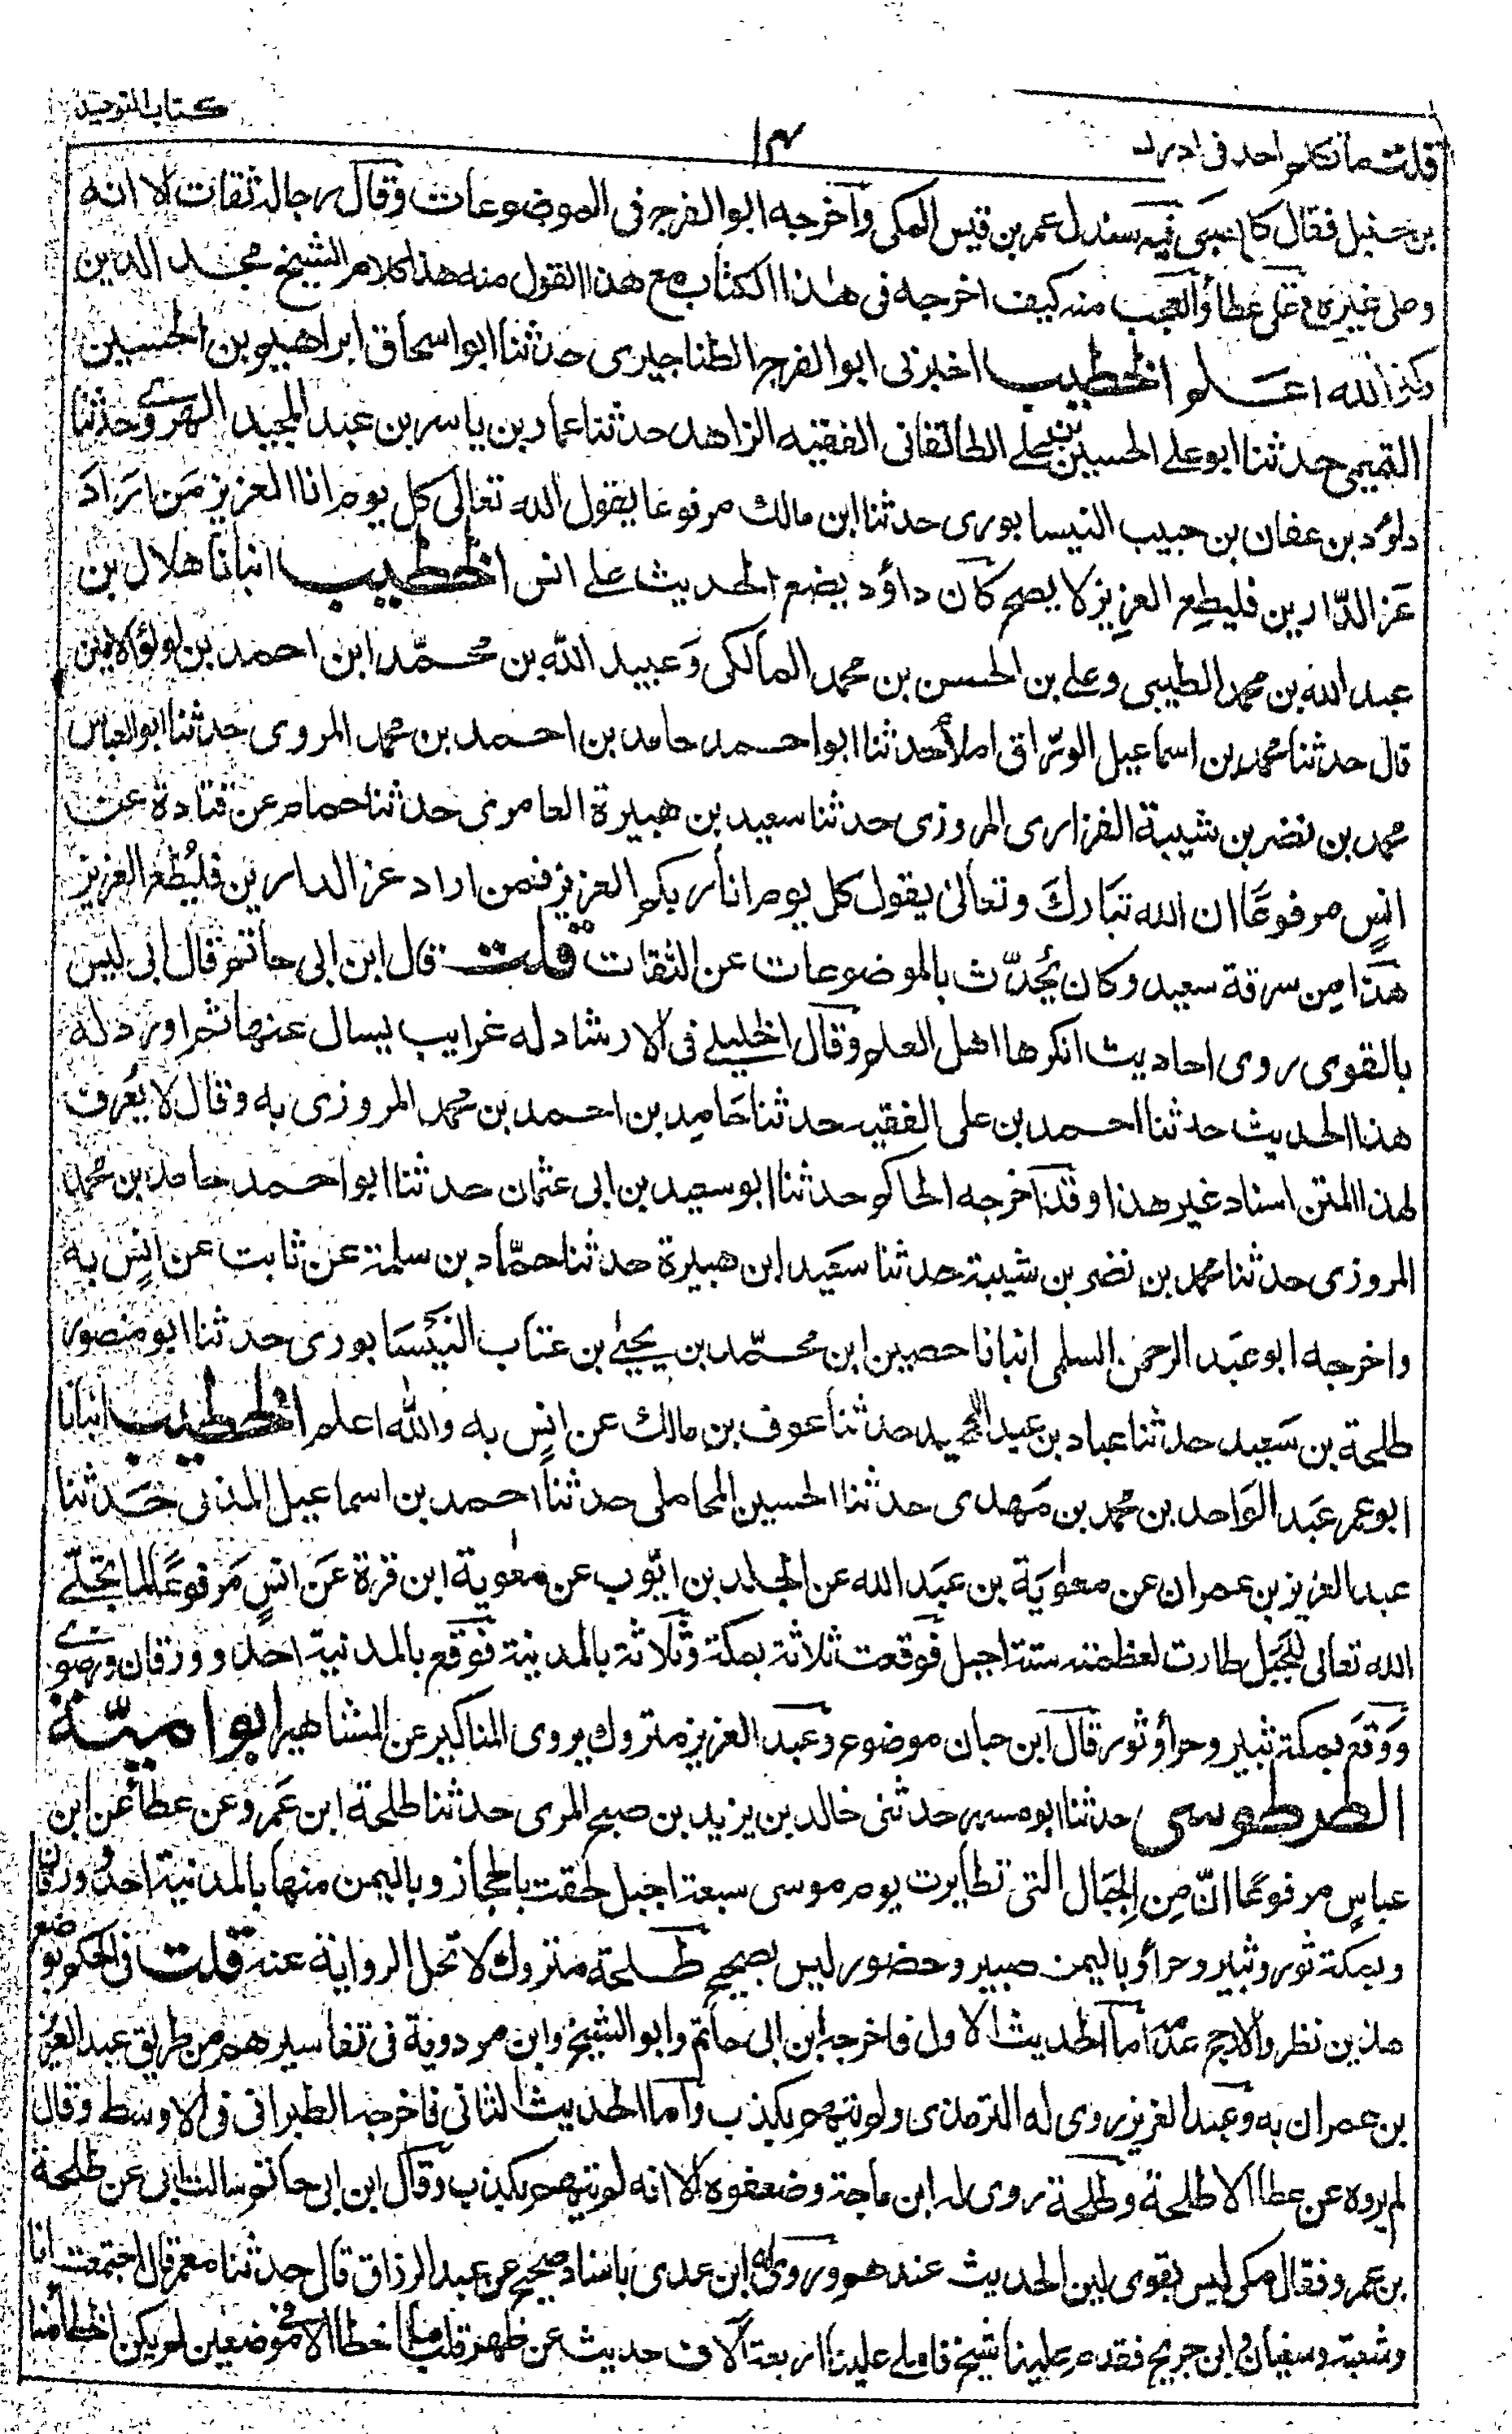 كتاب التوحيد
١٣
قلت ما تكلم احد فى ادرك
بن حنبل فقال كان سبى فيه سندل عمر بن قيس المكى وآخرجه ابو الفرج فى الموضوعات وقال رجاله ثقات الا انه
وصلى غيره على عطأ والعجب منه كيف اخرجه فى هذا الكتاب مع هذا القول منه هذا كلام الشيخ مجد الدين
والله اعلم الخطيب اخبرنى ابو الفرج الطناجيرى حدثنا ابو اسحاق ابراهيم بن الحسين
التميمى حدثنا ابو على الحسين بن على الطالقانى الفقيه الزاهد حدثنا عمار بن ياسر بن عبد المجيد الهروى وحدثنا
داؤد بن عفان بن حبيب النيسابورى حدثنا ابن مالك مرفوعا يقول الله تعالى كل يوم انا العزيز من اراد
عز الدارين فليطع العزيز لا يصح كان داؤد يضع الحديث على انس الخطيب انبانا هلال بن
عبد الله بن محمد الطيبى وعلى بن الحسن بن محمد المالكى وعبيد الله بن محمد ابن احمد بن لولؤ الامين
قال حدثنا محمد بن اسماعيل الوراق املأ حدثنا ابو احمد حامد بن احمد بن محمد المروى حدثنا ابو العباس
محمد بن نضر بن شيبة الفزارى المروزى حدثنا سعيد بن هبيرة العامرى حدثنا حمام عن قتادة عن
انس مرفوعا ان الله تبارك وتعالى يقول كل يوم انا ربكم العزيز فمن اراد عز الدارين فليطع العزيز
هذا من سرقة سعيد وكان يحدث بالموضوعات عن الثقات قلت قال ابن ابى حاتم قال ابى ليس
بالقوى روى احاديث انكرها اهل العلم وقال الخليلى فى الارشاد له غرايب يسال عنها ثم اورد له
هذا الحديث حدثنا احمد بن على الفقيه حدثنا حامد بن احمد بن محمد المروزى به وقال لا يعرف
لهذا المتن اسناد غير هذا وقد اخرجه الحاكم حدثنا ابو سعيد بن ابى عثمان حدثنا ابو احمد حامد بن محمد
المروزى حدثنا محمد بن نضر بن شيبة حدثنا سعيد ابن هبيرة حدثنا حماد بن سلمة عن ثابت عن انس به
واخرجه ابو عبد الرحمن السلمى انبانا حصين ابن محمد بن يحيى بن عتاب النيسابورى حدثنا ابو منصور
طلحة بن سعيد حدثنا عباد بن عبد المجيد حدثنا عوف بن مالك عن انس به والله اعلم الخطيب انبانا
ابو عمر عبد الواحد بن محمد بن مهدى حدثنا الحسين المحاملى حدثنا احمد بن اسماعيل المدنى حدثنا
عبد العزيز بن عمران عن معوية بن عبد الله عن الجلد بن ايوب عن معوية ابن قرة عن انس مرفوعا لما تجلى
الله تعالى للجبل طارت لعظمته ستة اجبل فوقعت ثلاثة بمكة وثلاثة بالمدينة فوقع بالمدنية احد وورقان ورضوى
ووقع بمكة ثبير وحرأ وثور قال ابن حبان موضوع وعبد العزيز متروك يروى المناكير عن المشاهير ابو امية
الطرطوسى حدثنا ابو مسهر حدثنى خالد بن يزيد بن صبح المرى حدثنا طلحة ابن عمرو عن عطأ عن ابن
عباس مرفوعا ان من الجبال التى تطايرت يوم موسى سبعة اجبل لحقت بالحجاز وباليمن منها بالمدنية احد وورقان
وبمكة ثور وثبير وحرأ وباليمن صبير وحضور ليس بصحيح طلحة متروك لا تحل الرواية عنه قلت فى الحكم بوضع
هذين نظر والارجح عدمه اما الحديث الاول فاخرجه ابن ابى حاتم وابو الشيخ وابن مردوية فى تفاسيرهم من طريق عبد العزيز
بن عمران به وعبد العزيز روى له الترمذى ولم يتهم بكذب واما الحديث الثانى فاخرجه الطبرانى فى الاوسط وقال
لم يروه عن عطا الا طلحة وطلحة روى له ابن ماجة وضعفوه الا انه لم يتهم بكذب وقال ابن ابى حاتم سالت ابى عن طلحة
بن عمرو فقال مكى ليس بقوى لين الحديث عندهم وروى ابن عدى باسناد صحيح عن عبد الرزاق قال حدثنا معمر قال اجتمعت انا
وشعبة وسفيان وابن جريج فقدم علينا شيخ فاملى علينا اربعة آلاف حديث عن ظهر قلب فما اخطأ الا فى موضعين لم يكن الخطأ منا